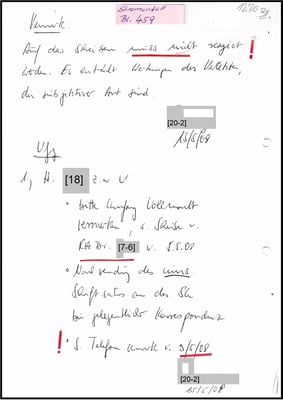 Bl. 459
Vermerk
Auf das Schreiben muss nicht reagiert
werden. Es enthält Wertungen des
die subjektiver Art sind.
[20-2]
15/5/08
Vfg
1, H. [18] z.w.V
• bitte Umfang Vollmacht
vermerken, s. Schreiben v.
RA Dr. [7-6] v. 5.5.08
• Nachsendung des
Schriftsatzes an das
bei gelegentlicher Korrespondenz
! • S. Telefonvermerk v. 9/5/08
[20-2]
15/5/08